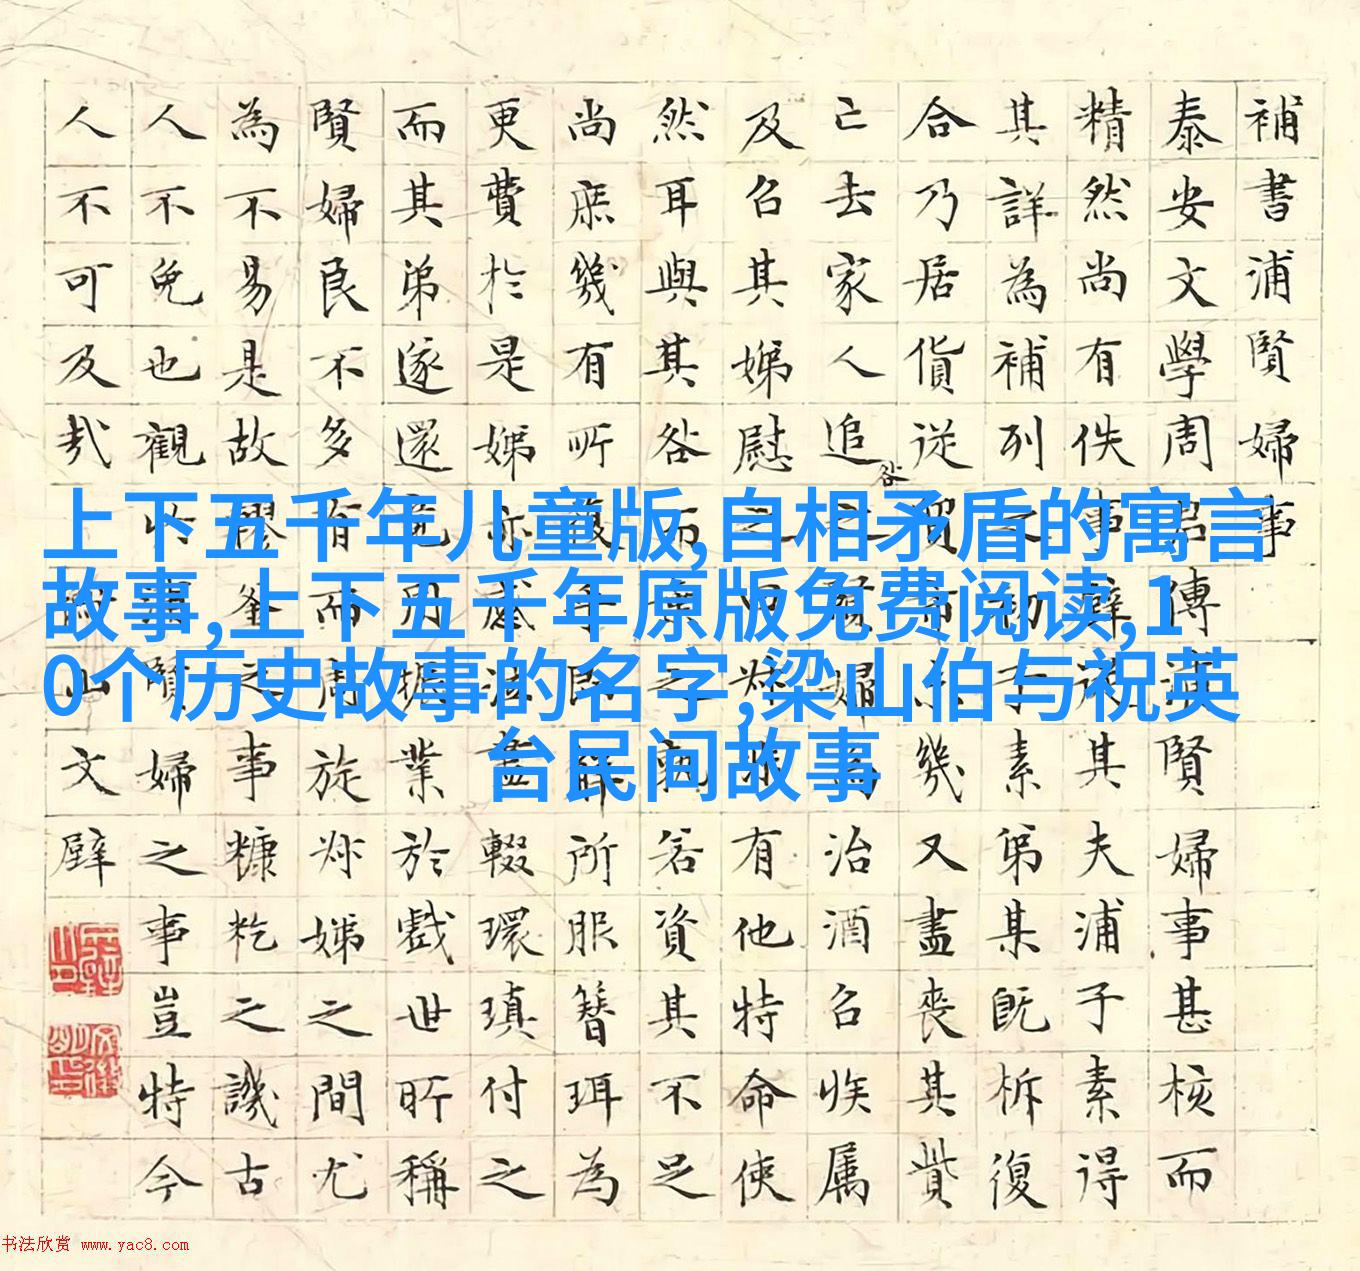 補書浦賢婦事
泰安文學周傳賢婦事甚核而
精然尚有佚事其夫浦子素得
其詳為補列素弟某既析復
合乃居貨從幾又盡喪其貲
亡去家人追治酒召族属
及召其娣慰之有他特命使
然耳與其咎而若資其不足
尚庶幾有所所服簪珥為
更費於是娣亦感輟環瑱付之
而其弟遂還業於戲世所稱
賢婦良不多有而周旋妯娣之間尤
為不易是故繆釜之事糠籺之譏古
人不免也觀賢婦之事豈特今
人不可及哉
山文璧
上下五千年儿童版,自相矛盾的寓言
故事,上下五千年原版免费阅读,1
0个历史故事的名字,梁山伯与祝英
台民间故事
书法欣赏 www.yac8.com